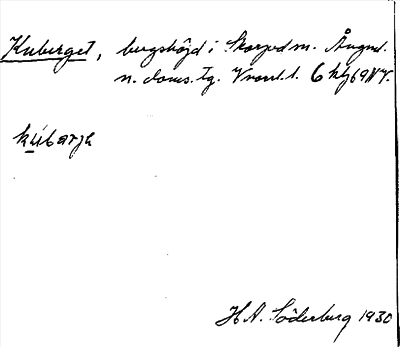 Kuberget, bergshöjd i Skorped sn. Ångml.
n. doms. tg. Vronl. l. 6 hlj 69 NV.
kùbarjə
H A. Söderberg 1930